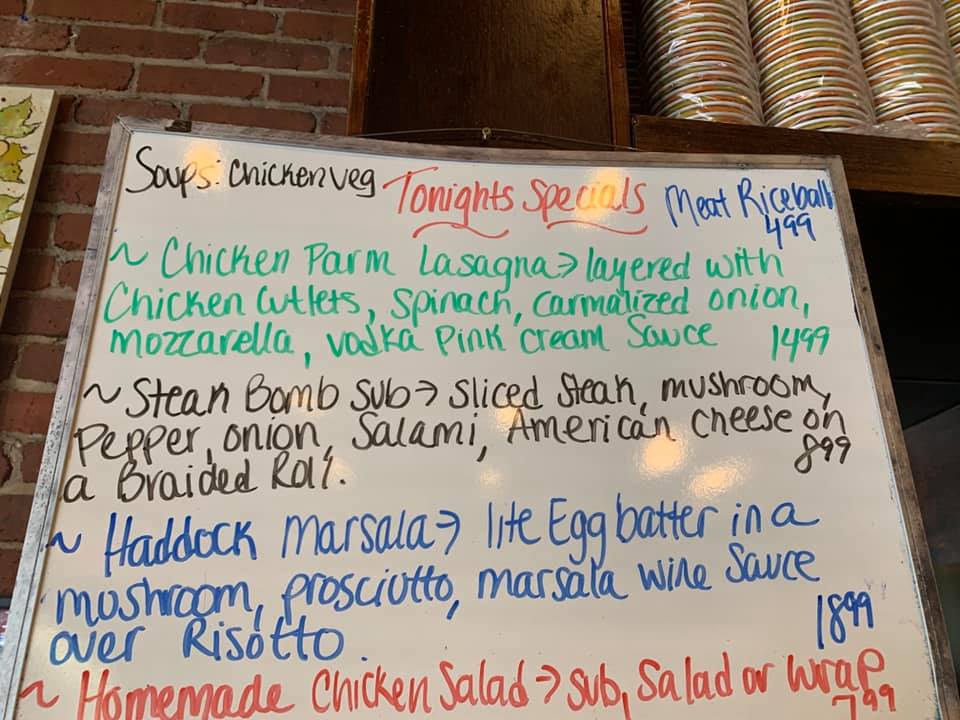 Soups: Chicken veg Tonights Specials Meat Riceball
499
~ Chicken Parm Lasagna → layered with
Chicken Cutlets, Spinach, Carmalized onion,
mozzarella, vodka Pink Cream Sauce 1499
~ Steak Bomb Sub → Sliced Steak, mushroom,
Pepper, onion, Salami, American Cheese on
a Braided Roll. 899
~ Haddock Marsala → lite Egg batter in a
mushroom, prosciutto, marsala wine Sauce
over Risotto. 1899
~ Homemade Chicken Salad → Sub, Salad or Wrap
799